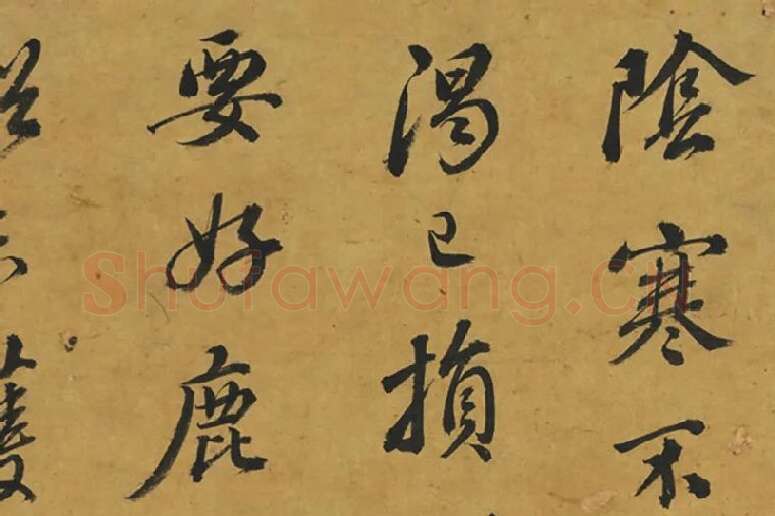 陰寒不
渴已損
要好鹿
Shufawang.Cn